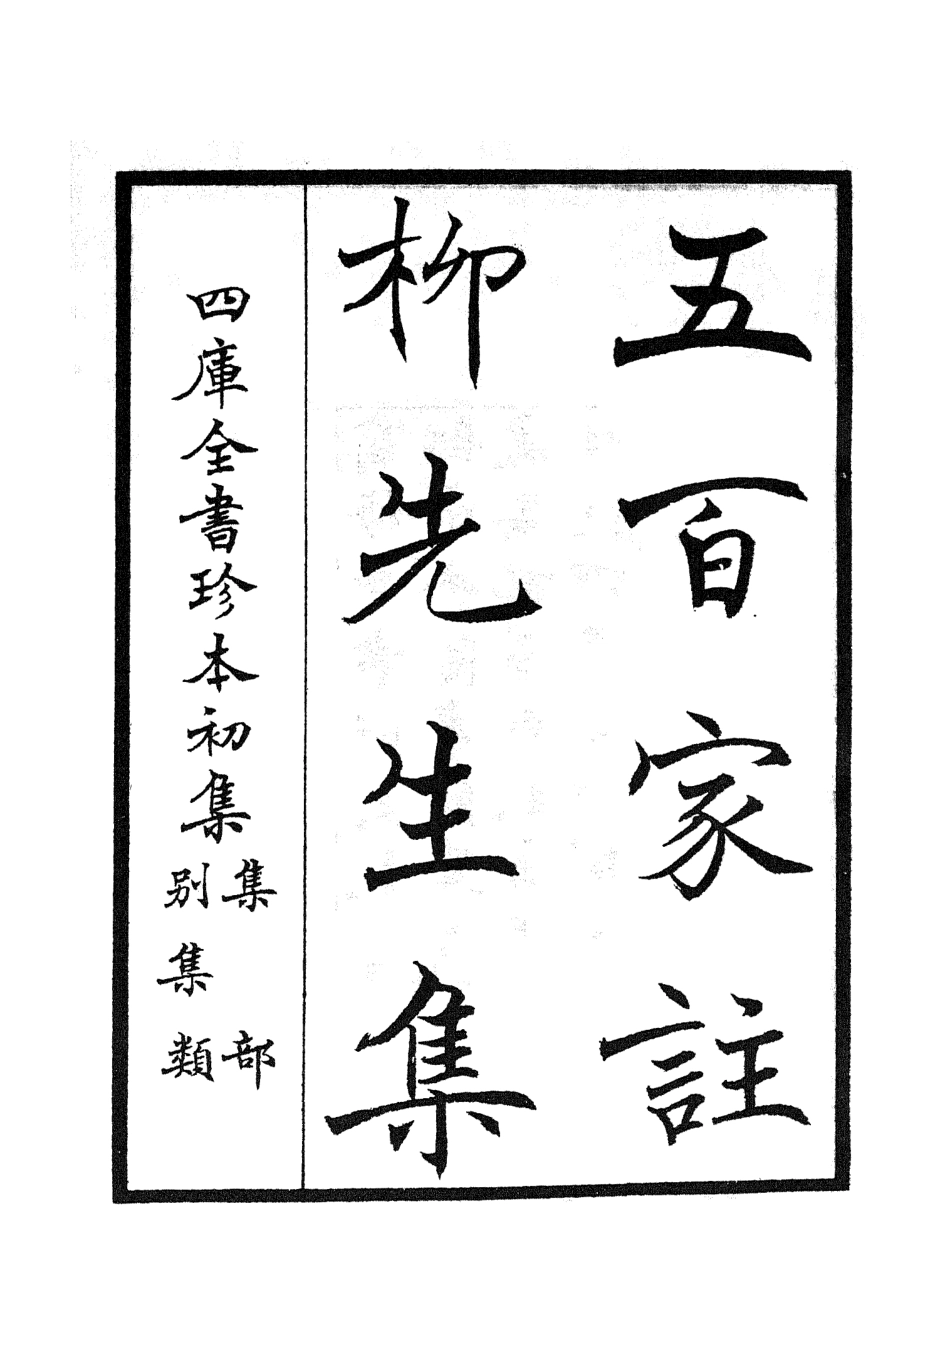 五百家註
柳先生集
四庫全書珍本初集
集部
別集類